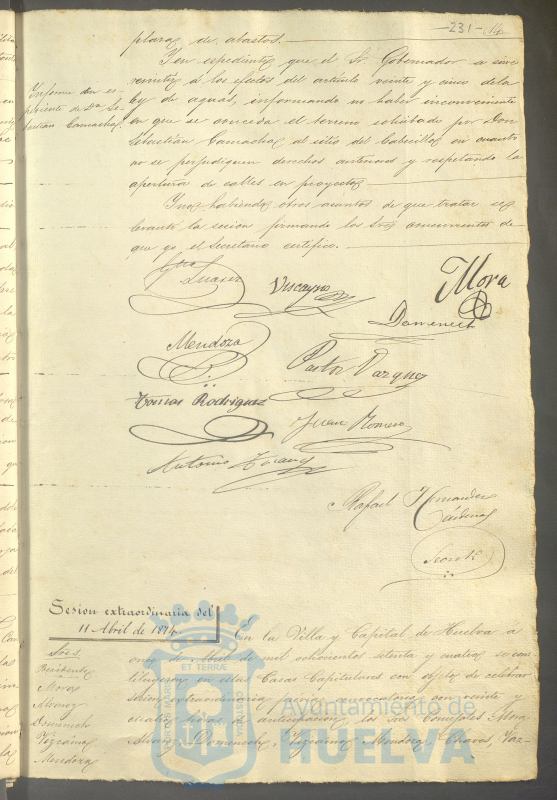 -231-
plaza de abastos.
Y en espediente que el Sr. Gobernador a
remitido á los efectos del artículo veinte y cinco de la
ley de aguas, informando no haber inconveniente
en que se conceda el terreno solicitado por Don
Sebastian Camacho, al sitio del Cabecillo, en cuanto
no se perjudiquen derechos anteriores y respetando la
apertura de calles en proyecto
Informe en es-
pediente de Dn Se-
bastian Camacho
Y no habiendo otros asuntos de que tratar se
levantó la sesion firmando los Sres concurrentes de
que yo el Secretario certifico.
Suarez
Vizcayno
Mora
Domenech
Mendoza
Pastor Vazquez
Tomas Rodriguez
Juan Romero
Antonio
Rafael Hernandez
Cárdenas
Secrio
Sesion extraordinaria del
11 Abril de 1874
Sres.
Presidente
Mora
Alvarez
Domenech
Vizcaino
Mendoza
En la Villa y Capital de Huelva a
once de Abril de mil ochocientos setenta y cuatro se con
stituyeron en estas Casas Capitulares con objeto de celebrar
sesion extraordinaria, previa convocatoria con veinte y
cuatro horas de anticipacion, los Sres Concejales Mora
Alvarez, Domenech, Vizcaino, Mendoza, Chaves, Vaz-
ET TERRAE
Ayuntamiento de
HUELVA